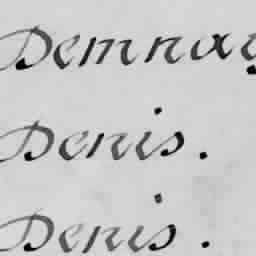 Demnay
Denis.
Denis.